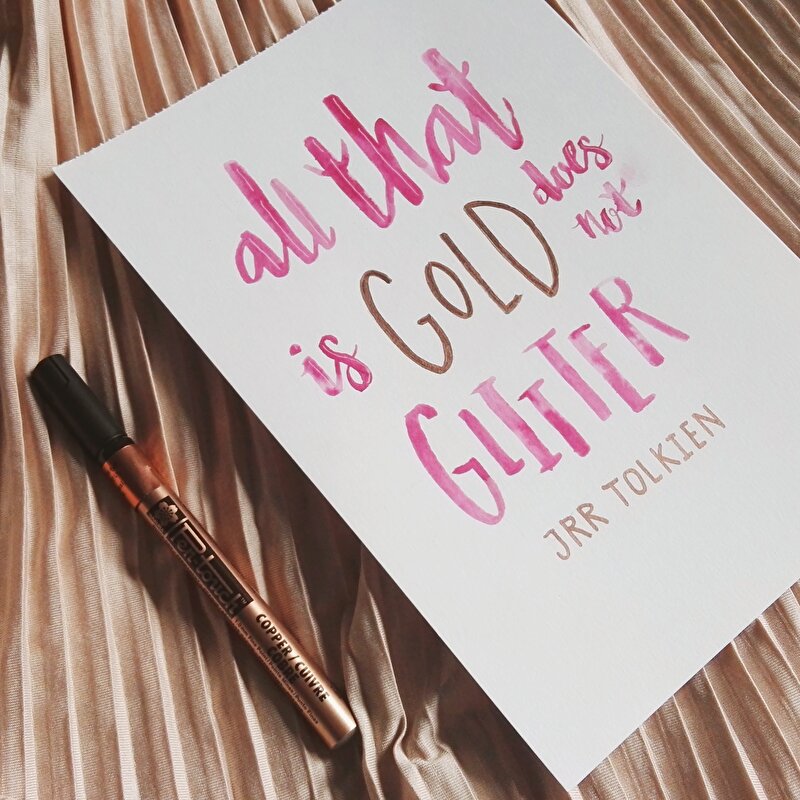 all that
is GOLD does
not
GLITTER
JRR TOLKIEN
Pen-touch™
COPPER / CUIVRE
COBRE